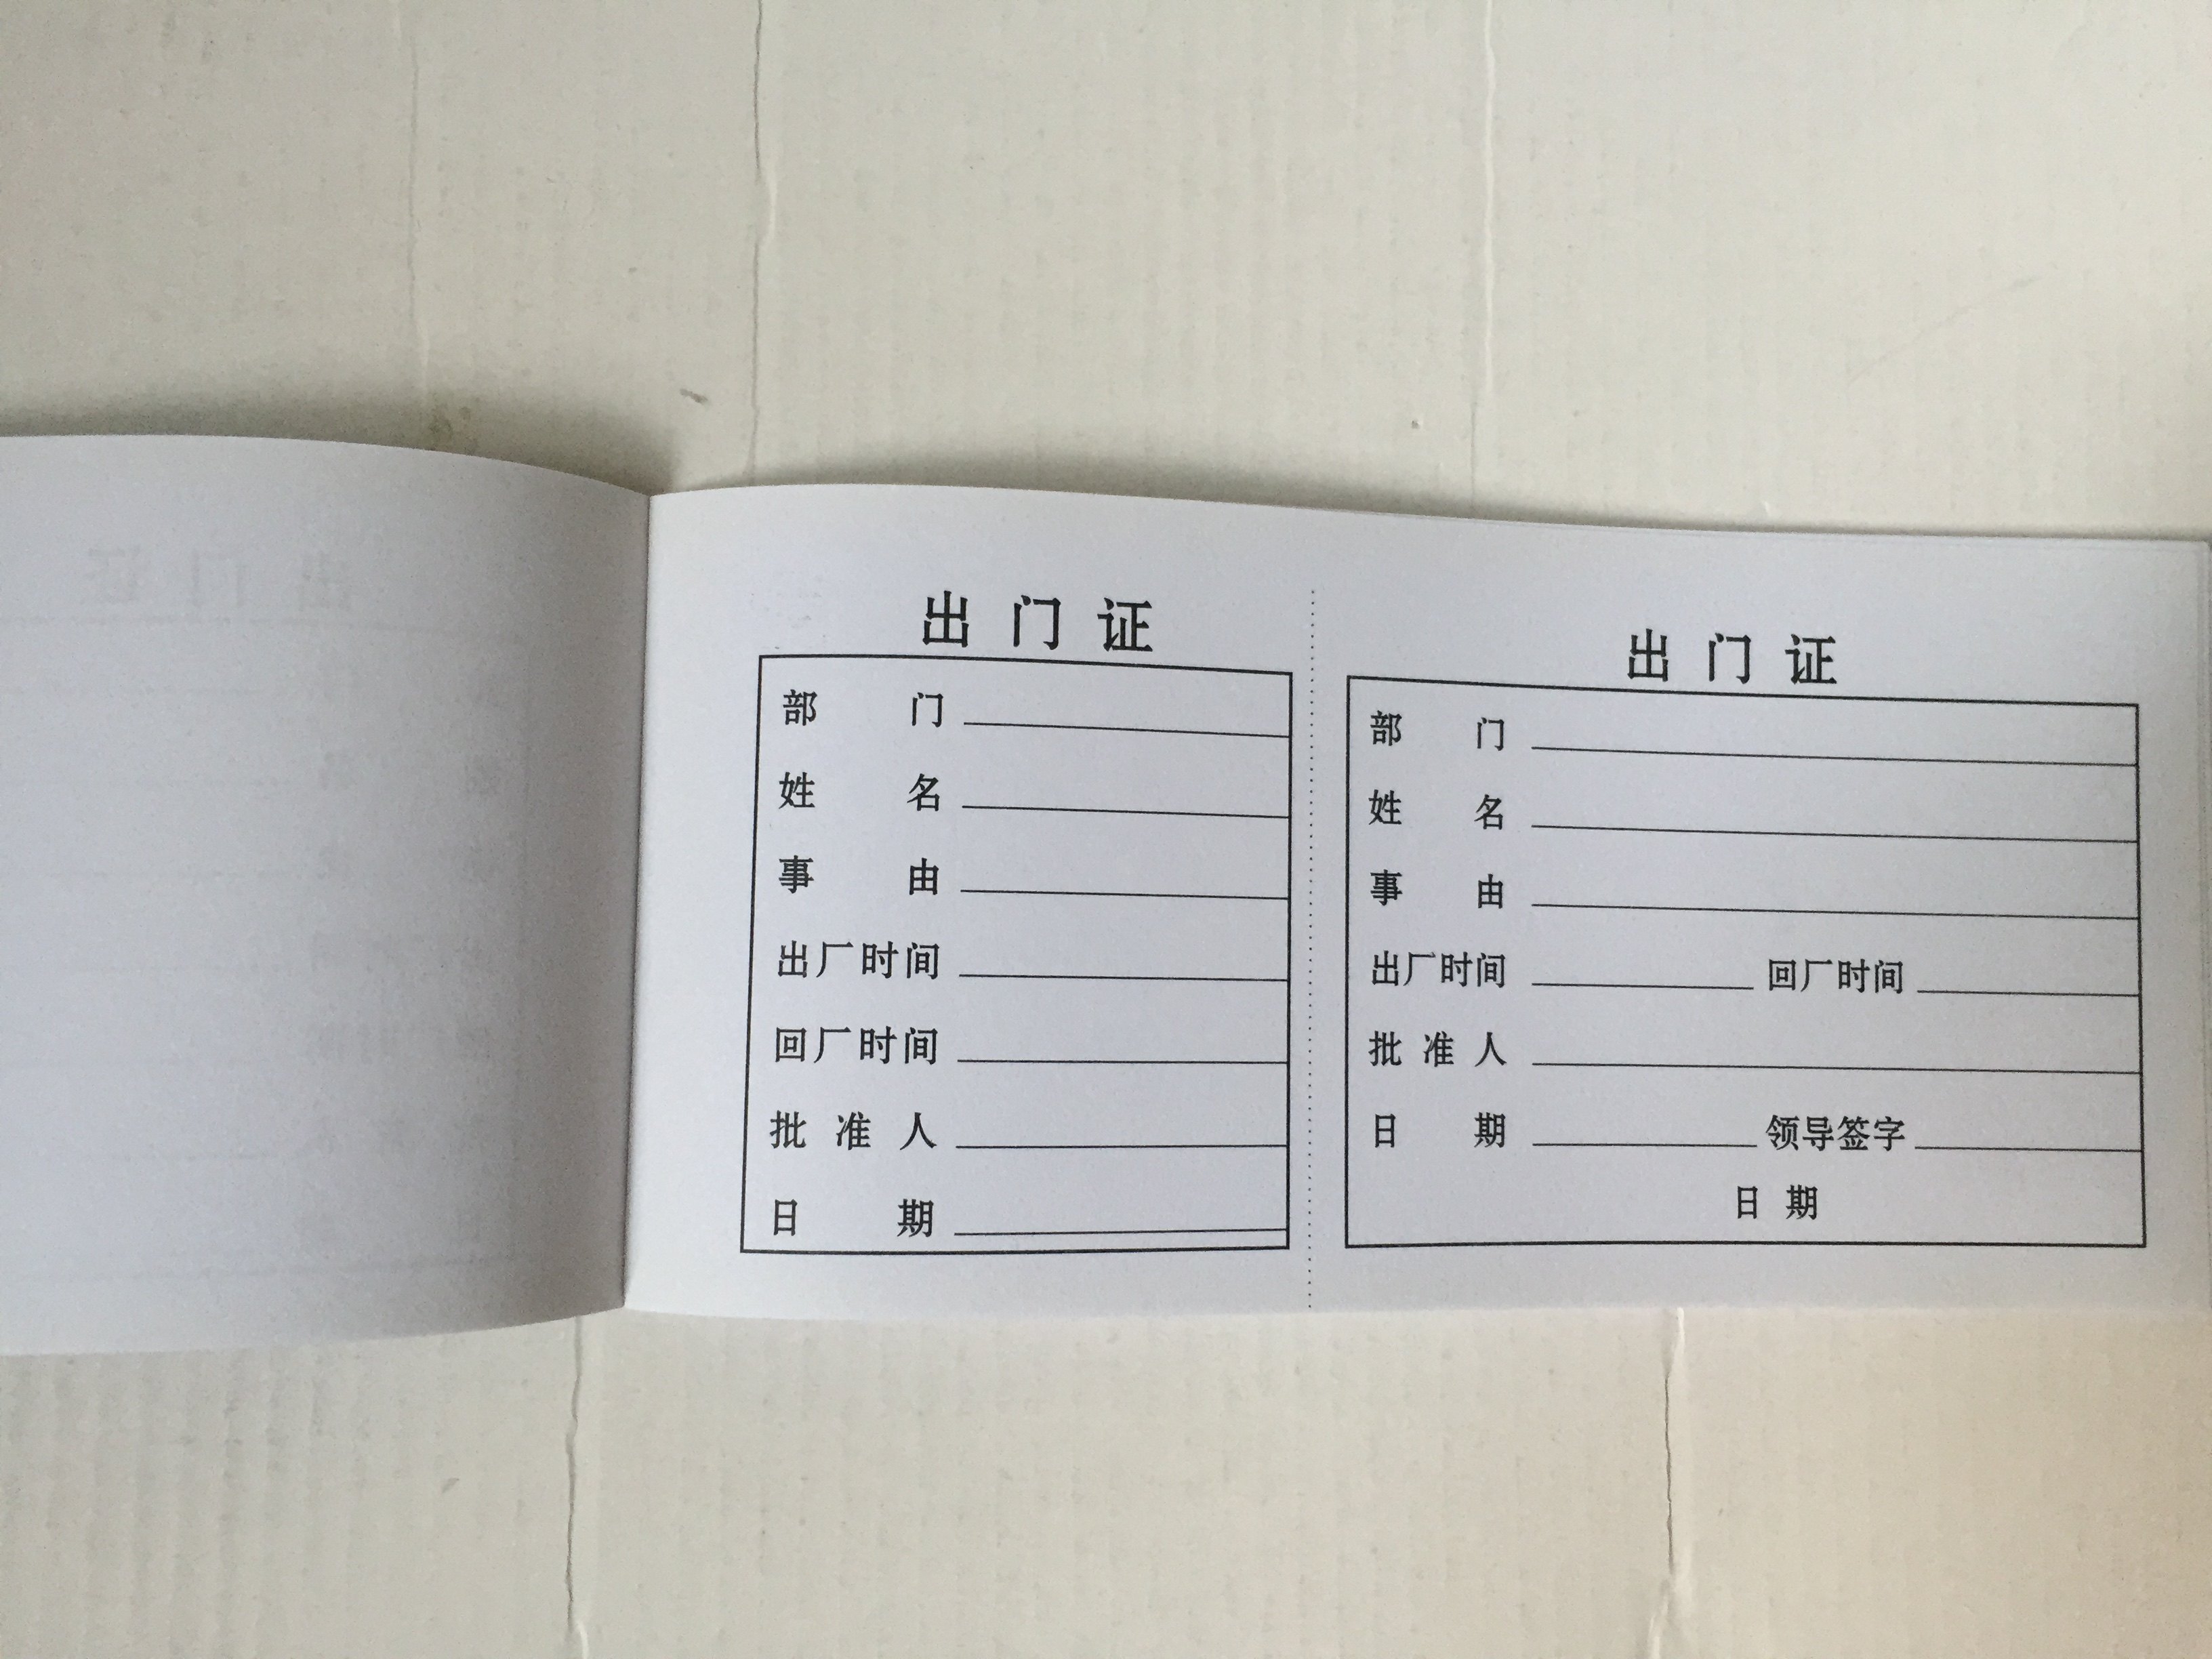 出门证
部门
姓名
事由
出厂时间
回厂时间
批准人
日期
出门证
部门
姓名
事由
出厂时间 回厂时间
批准人
日期 领导签字
日期